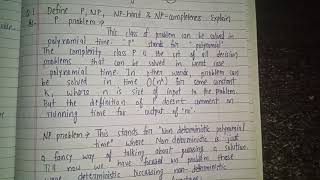 Q.1 Define P, NP, NP-hard & NP-completeness. Explain
P problem →
This class of problem can be solved in
polynomial time. "P" stands for "polynomial".
The complexity class P is the set of all decision
problems that can be solved in worst case
polynomial time. In other words, problem can
be solved in time O(n^k) for some constant
K, where n is size of input to the problem.
But the definition of P doesn't comment on
running time for output of "no".
NP problem → This stands for "Non deterministic polynomial
time" where Non deterministic is just
a fancy way of talking about guessing a solution.
Till now we have focused on problem these
were deterministic